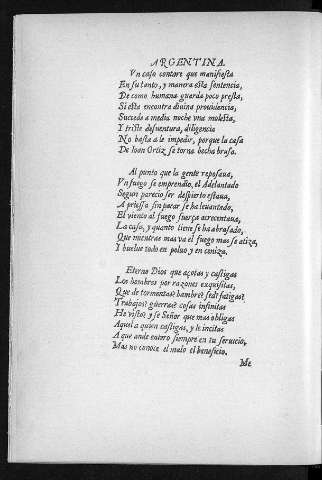 ARGENTINA.
Vn caso contare que manifiesta
En su tanto, y manera esta sentencia,
De como humana guarda poco presta,
Si esta encontra diuina prouidencia,
Sucede a media noche vna molesta,
Y triste desuentura, diligencia
No basta a le impedir, porque la casa
De Ioan Ortiz se torna hecha brasa.
Al punto que la gente reposaua,
Vn fuego se emprendio, el Adelantado
Segun parecio ser despierto estaua,
A priessa sin parar se ha leuantado,
El viento al fuego fuerça acrecentaua,
La casa, y quanto tiene se ha abrasado,
Que mientras mas va el fuego mas se atiza,
Y buelue todo en poluo y en ceniza.
Eterno Dios que açotas y castigas
Los hombres por razones exquisitas,
Que de tormentas? hambre? sed? fatigas?
Trabajos? guerras? cosas infinitas
He visto? y se Señor que mas obligas
Aquel a quien castigas, y le incitas
A que ande entero siempre en tu seruicio,
Mas no conoce el malo el beneficio.
Me